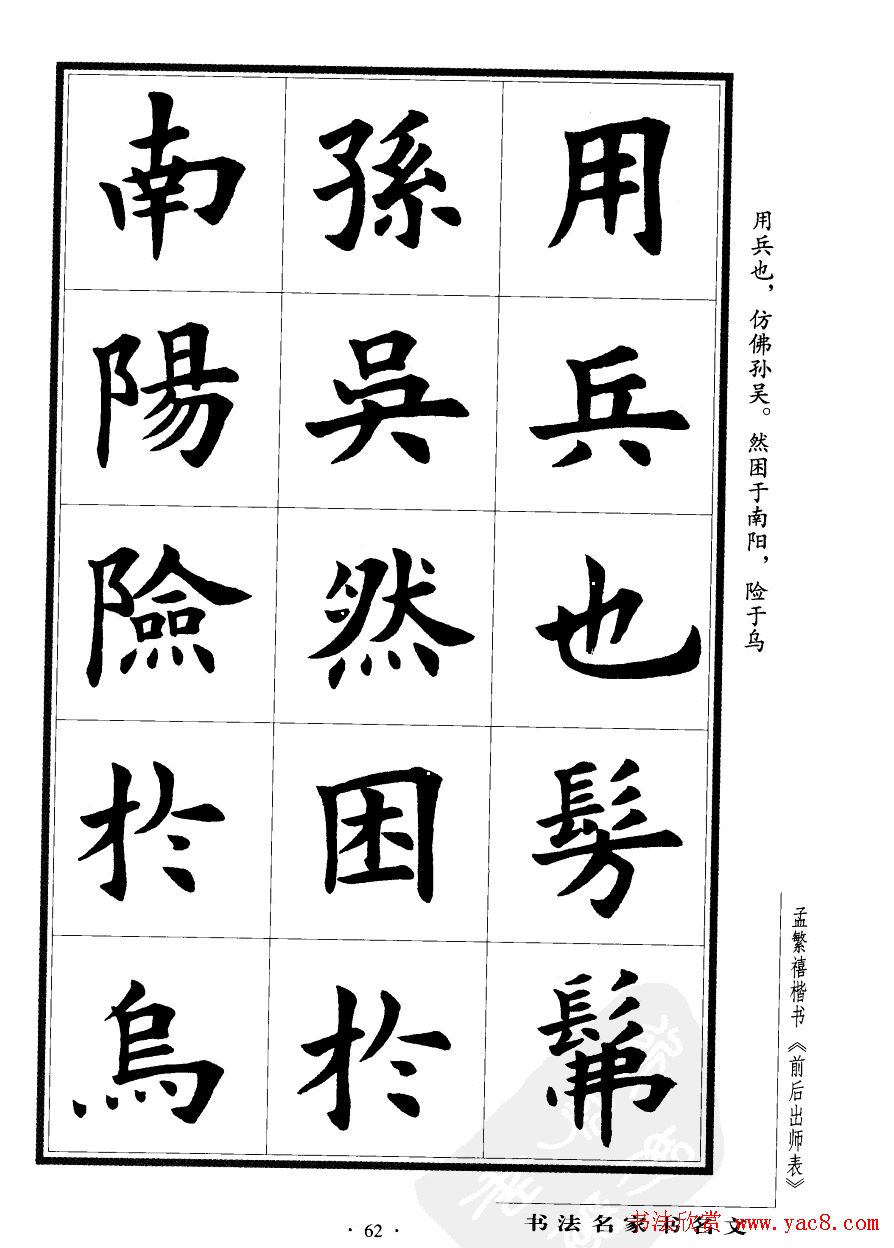 用兵也髣髴
孫吳然困於
南陽險於烏
用兵也，仿佛孙吴。然困于南阳，险于乌
孟繁禧楷书《前后出师表》
· 62 ·
书法名家书名文
书法欣赏 www.yac8.com